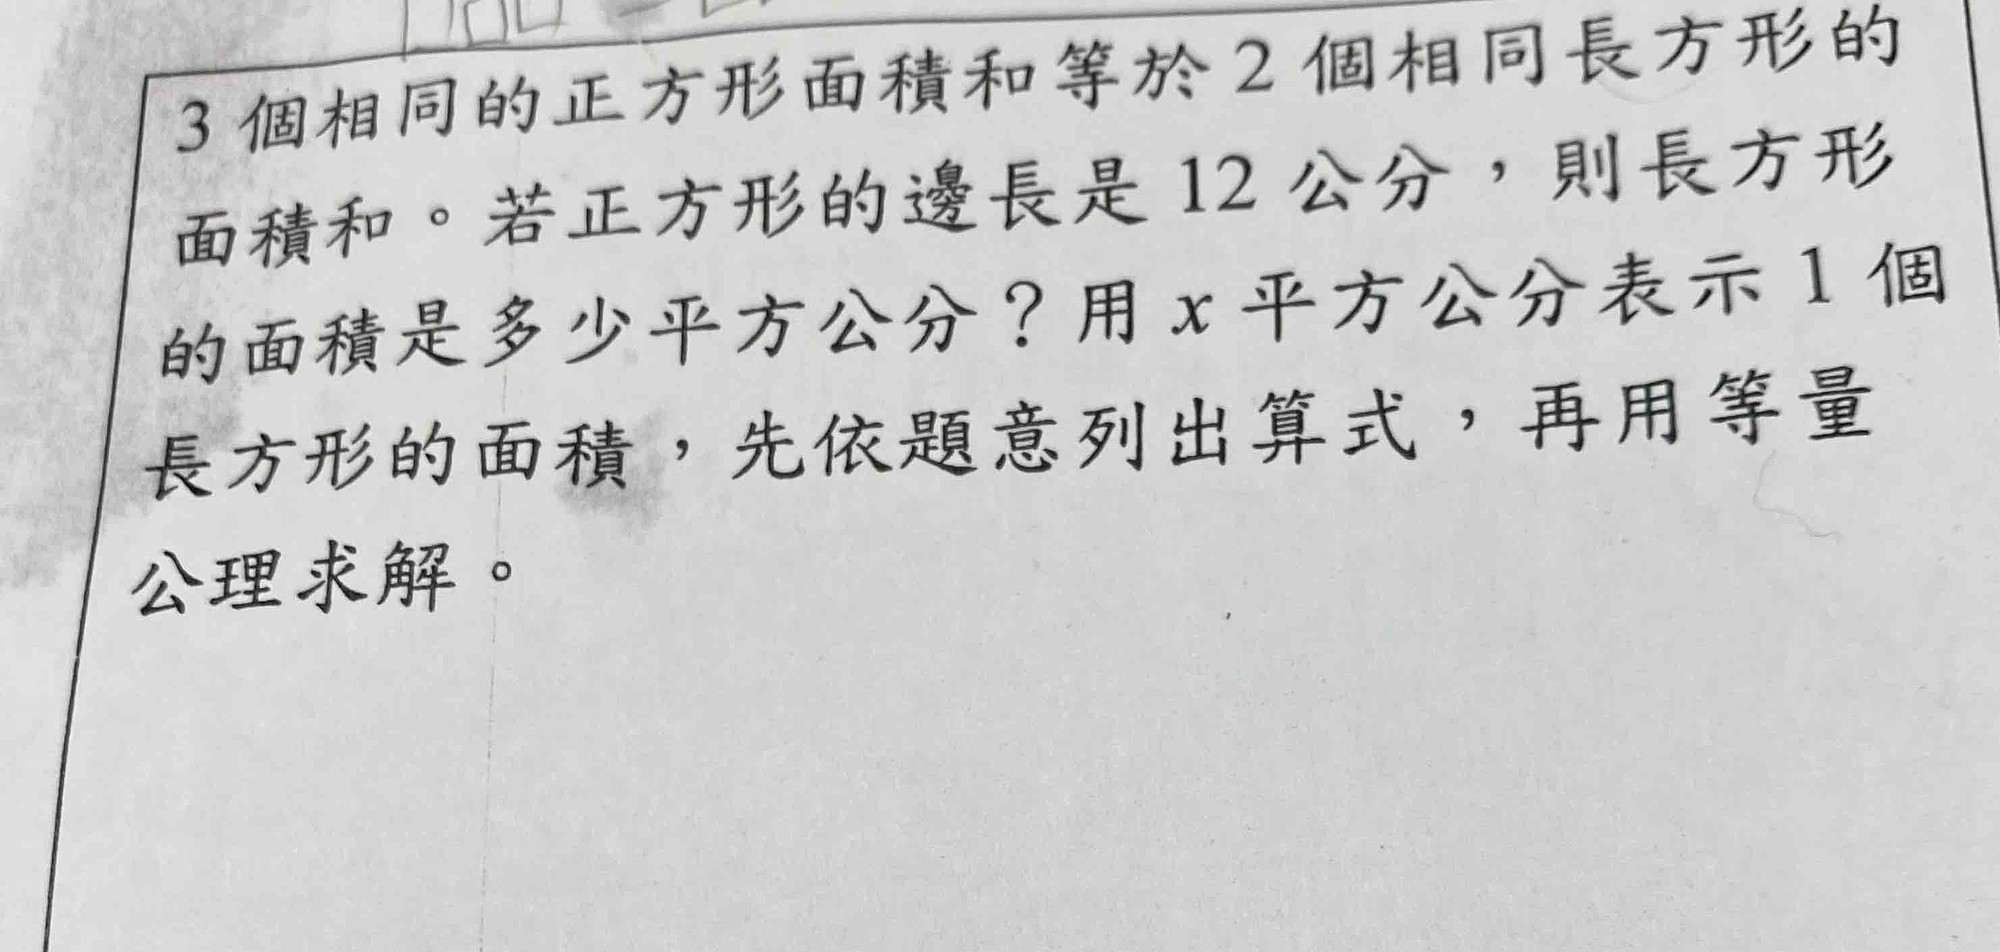 3 個相同的正方形面積和等於 2 個相同長方形的
面積和。若正方形的邊長是 12 公分，則長方形
的面積是多少平方公分？用 x 平方公分表示 1 個
長方形的面積，先依題意列出算式，再用等量
公理求解。